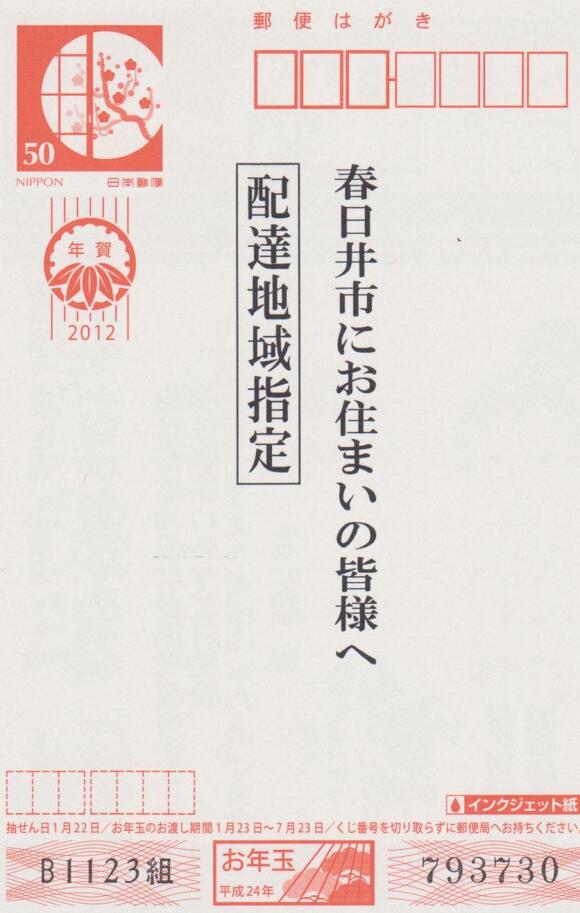 郵便はがき
50
NIPPON 日本郵便
年賀
2012
春日井市にお住まいの皆様へ
配達地域指定
インクジェット紙
抽せん日1月22日／お年玉のお渡し期間1月23日～7月23日／くじ番号を切り取らずに郵便局へお持ちください。
B1123組
お年玉
平成24年
793730